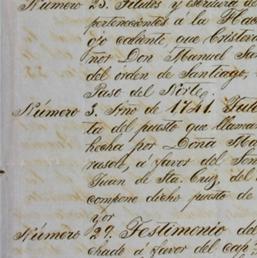 Número 25. Titulos y escritura de
pertenecientes á la Hac
ojo caliente, que Cristóva
ñor Don Manuel Sa
del órden de Santiago,
Paso del Norte.
Número 3. Año de 1741.
ta del puesto que llaman
hecha por Doña Ma
á favor del Señ
Juan de Sta. Cruz, del
compone dicho puesto de
yor
Número 29. Testimonio del
á favor del cap.